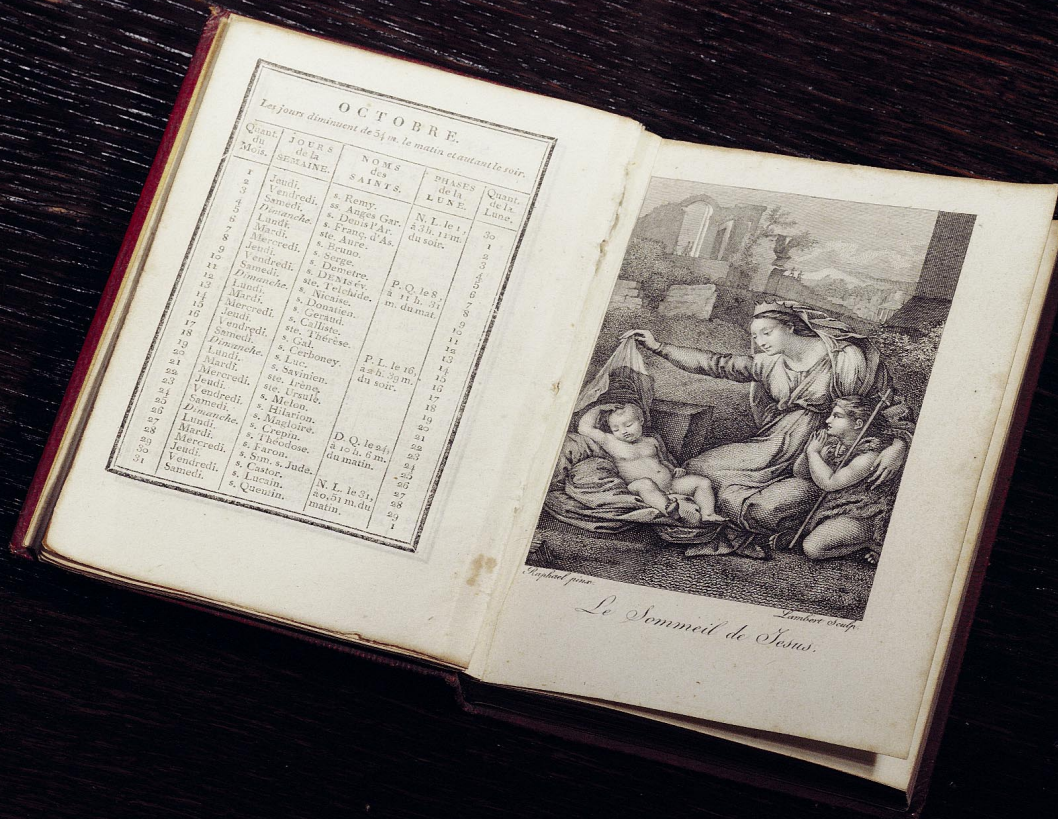 OCTOBRE.
Les jours diminuent de 54 m. le matin et autant le soir.
Quant. du Mois. JOURS de la SEMAINE. NOMS des SAINTS. PHASES de la LUNE. Quant. de la Lune.
1 Jeudi. s. Remy. N. L. le 1, 30
2 Vendredi. ss. Anges Gar. à 3 h. 11 m. 1
3 Samedi. s. Denis l'Ar. du soir. 2
4 Dimanche. s. Franç. d'As. 3
5 Lundi. ste. Aure. 4
6 Mardi. s. Bruno. 5
7 Mercredi. s. Serge. 6
8 Jeudi. s. Demetre. P. Q. le 8, 7
9 Vendredi. s. DENIS év. à 11 h. 31 8
10 Samedi. ste. Telchide. m. du mat. 9
11 Dimanche. s. Nicaise. 10
12 Lundi. s. Donatien. 11
13 Mardi. s. Geraud. 12
14 Mercredi. s. Calliste. 13
15 Jeudi. ste. Thérèse. 14
16 Vendredi. s. Gal. P. L. le 16, 15
17 Samedi. s. Cerboney. à 2 h. 39 m. 16
18 Dimanche. s. Luc. du soir. 17
19 Lundi. s. Savinien. 18
20 Mardi. ste. Irène. 19
21 Mercredi. ste. Ursule. 20
22 Jeudi. s. Melon. 21
23 Vendredi. s. Hilarion. 22
24 Samedi. s. Magloire. D. Q. le 24, 23
25 Dimanche. s. Crepin. à 10 h. 6 m. 24
26 Lundi. s. Théodose. du matin. 25
27 Mardi. s. Faron. 26
28 Mercredi. s. Sim. s. Jude. N. L. le 31, 27
29 Jeudi. s. Castor. à 0, 51 m. du 28
30 Vendredi. s. Lucain. matin. 29
31 Samedi. s. Quentin. 1
Raphael pinx.
Lambert Sculp.
Le Sommeil de Jesus.